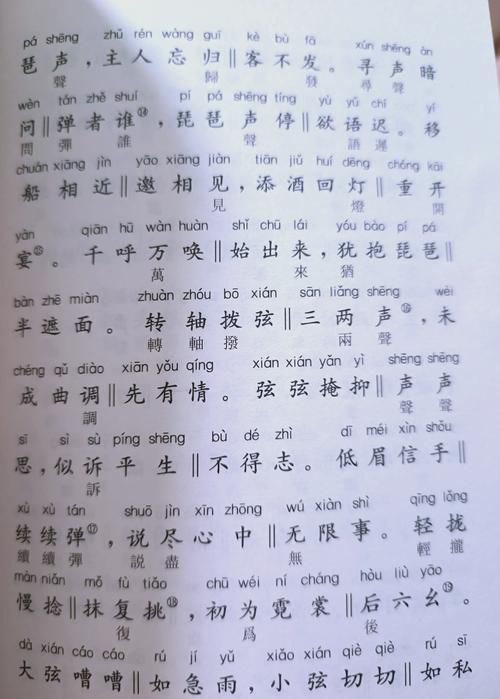 pá shēng zhǔ rén wàng guī kè bù fā xún shēng àn
琶声，主人忘归‖客不发。寻声暗
聲 歸 發 尋聲
wèn tán zhě shuí pí pá shēng tíng yù yǔ chí yí
问‖弹者谁⑭，琵琶声停‖欲语迟。移
問 彈 誰 聲 語遲
chuán xiāng jìn yāo xiāng jiàn tiān jiǔ huí dēng chóng kāi
船相近‖邀相见，添酒回灯‖重开
見 燈 開
yàn qiān hū wàn huàn shǐ chū lái yóu bào pí pá
宴⑮。千呼万唤‖始出来，犹抱琵琶‖
萬 來 猶
bàn zhē miàn zhuàn zhóu bō xián sān liǎng shēng wèi
半遮面。转轴拨弦‖三两声⑯，未
轉軸撥 兩聲
chéng qǔ diào xiān yǒu qíng xián xián yǎn yì shēng shēng
成曲调‖先有情。弦弦掩抑‖声声
調 聲聲
sī sì sù píng shēng bù dé zhì dī méi xìn shǒu
思，似诉平生‖不得志。低眉信手‖
訴
xù xù tán shuō jìn xīn zhōng wú xiàn shì qīng lǒng
续续弹⑰，说尽心中‖无限事。轻拢
續續彈 説盡 無 輕攏
màn niǎn mǒ fù tiǎo chū wéi ní cháng hòu liù yāo
慢捻‖抹复挑⑱，初为霓裳‖后六幺⑲。
復 爲 後
dà xián cáo cáo rú jí yǔ xiǎo xián qiè qiè rú sī
大弦嘈嘈‖如急雨，小弦切切‖如私